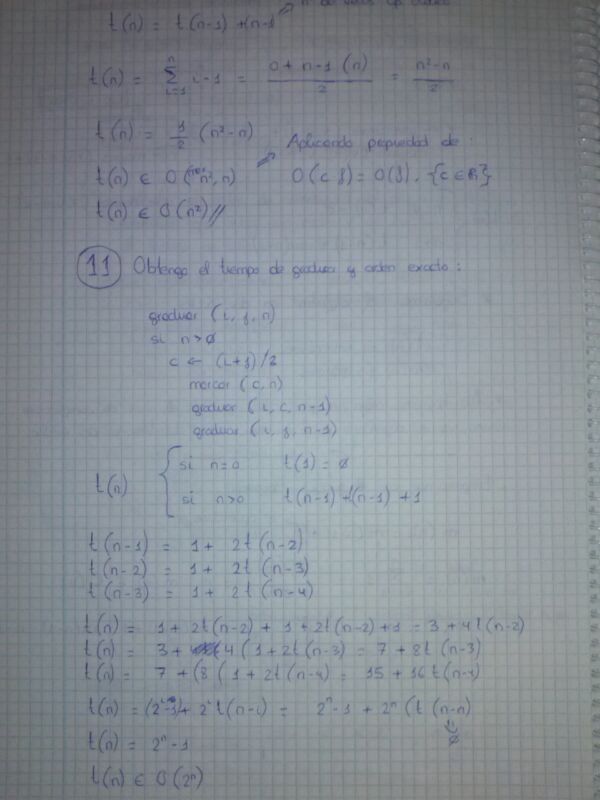 t(n) = t(n-1) + (n-1
t(n) = n Σ i=1 i-1 = 0 + n-1 (n) / 2 = n²-n / 2
t(n) = 1/2 (n²-n) Aplicando propiedad de :
t(n) ∈ O(n², n) O(c f) = O(f), {c ∈ R⁺}
t(n) ∈ O(n²) //
11 Obtenga el tiempo de graduar y orden exacto :
graduar (i, f, n)
si n>0
c ← (i+f)/2
marcar (c, n)
graduar (i, c, n-1)
graduar (i, f, n-1)
t(n) { si n=0 t(1) = 0
si n>0 t(n-1) + t(n-1) + 1
t(n-1) = 1 + 2t(n-2)
t(n-2) = 1 + 2t(n-3)
t(n-3) = 1 + 2t(n-4)
t(n) = 1 + 2t(n-2) + 1 + 2t(n-2) + 1 = 3 + 4t(n-2)
t(n) = 3 + 4(1 + 2t(n-3) = 7 + 8t(n-3)
t(n) = 7 + (8(1 + 2t(n-4) = 15 + 16t(n-4)
t(n) = (2ⁱ-1) + 2ⁱ t(n-i) = 2ⁿ-1 + 2ⁿ (t(n-n)
0
t(n) = 2ⁿ-1
t(n) ∈ O(2ⁿ)